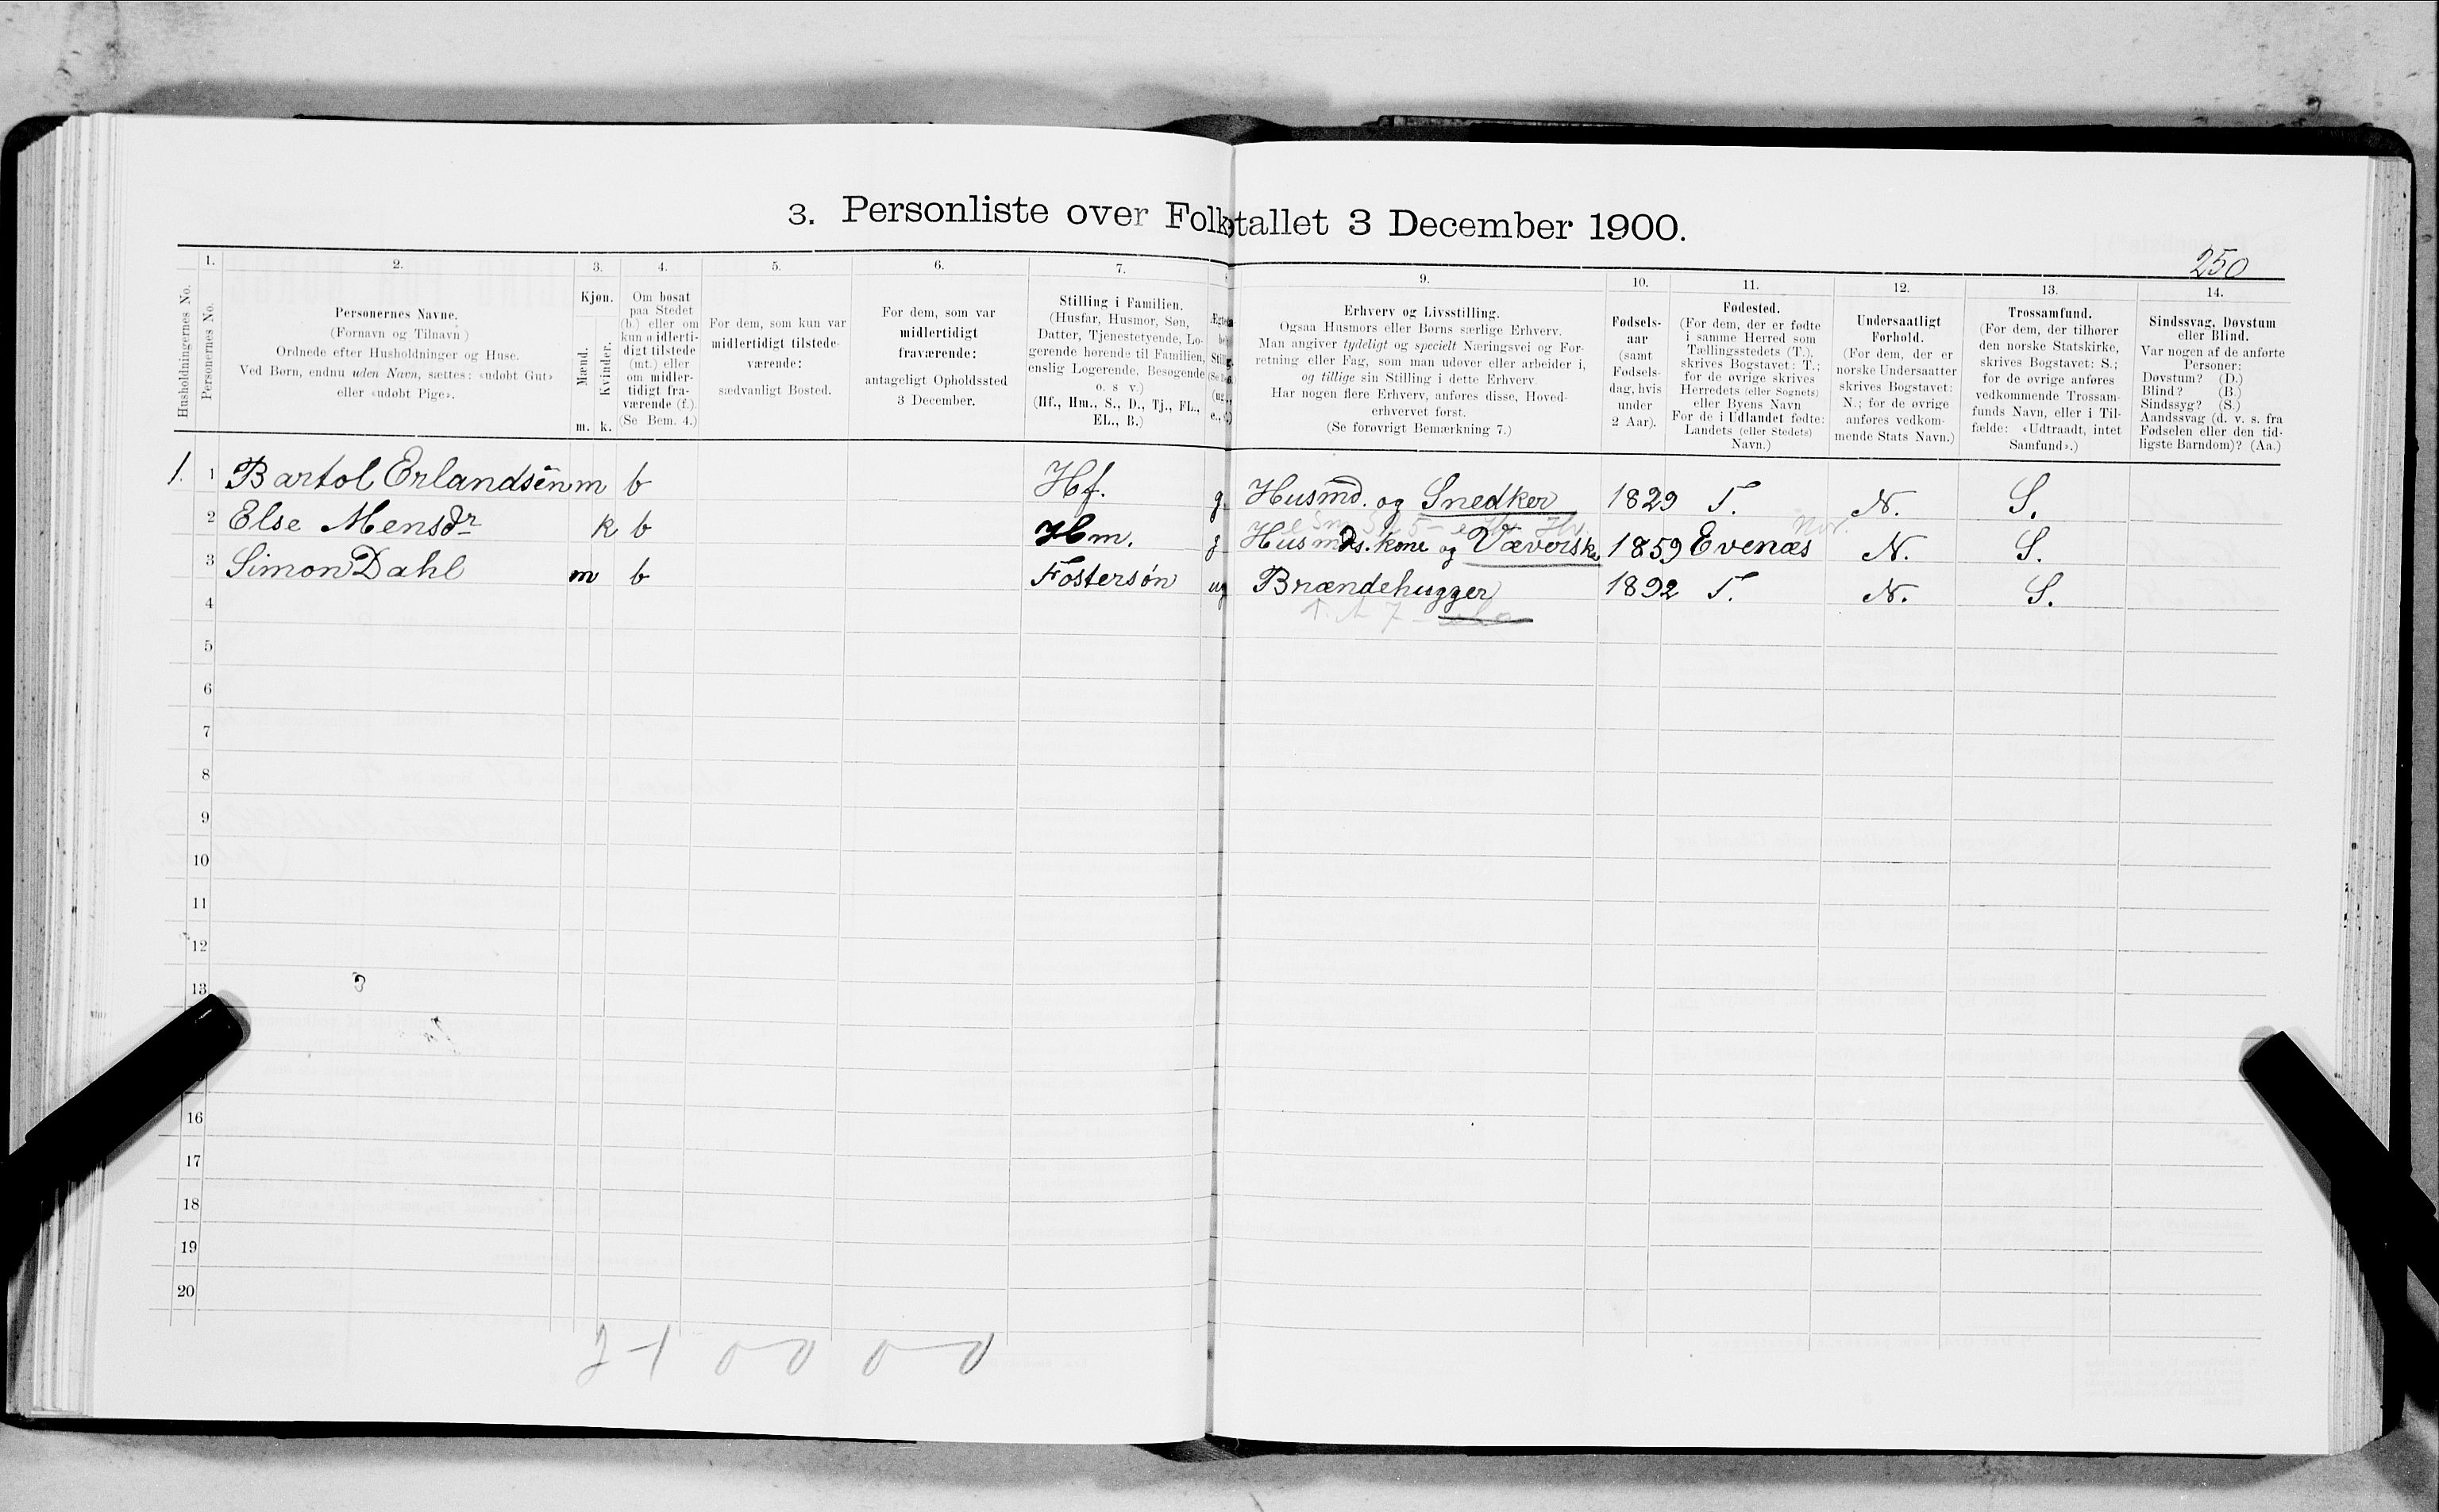 3. Personliste over Folketallet 3 December 1900.
250
1.
2.
3.
4.
5.
6.
7.
9.
10.
11.
12.
13.
14.
Husholdningernes No.
Personernes No.
Personernes Navne.
(Fornavn og Tilnavn)
Ordnede efter Husholdninger og Huse.
Ved Børn, endnu uden Navn, sættes: «udøbt Gut»
eller «udøbt Pige».
Kjøn.
Mænd.
Kvinder.
m. k.
Om bosat
paa Stedet
(b.) eller om
kun midlerti-
digt tilstede
(mt.) eller
om midler-
tidigt fra-
værende (f.).
(Se Bem. 4.)
For dem, som kun var
midlertidigt tilstede-
værende:
sædvanligt Bosted.
For dem, som var
midlertidigt
fraværende:
antageligt Opholdssted
3 December.
Stilling i Familien.
(Husfar, Husmor, Søn,
Datter, Tjenestetyende, Lo-
gerende hørende til Familien,
enslig Logerende, Besøgende
o. s v.)
(Hf., Hm., S., D., Tj., FL.,
EL., B.)
Erhverv og Livsstilling.
Ogsaa Husmors eller Børns særlige Erhverv.
Man angiver tydeligt og specielt Næringsvei og For-
retning eller Fag, som man udøver eller arbeider i,
og tillige sin Stilling i dette Erhverv.
Har nogen flere Erhverv, anføres disse, Hoved-
erhvervet først.
(Se forøvrigt Bemærkning 7.)
Fødsels-
aar
(samt
Fødsels-
dag, hvis
under
2 Aar).
Fødested.
(For dem, der er fødte
i samme Herred som
Tællingsstedets (T.),
skrives Bogstavet: T.;
for de øvrige skrives
Herredets (eller Sognets)
eller Byens Navn
For de i Udlandet fødte:
Landets (eller Stedets)
Navn.)
Undersaatligt
Forhold.
(For dem, der er
norske Undersaatter
skrives Bogstavet:
N.; for de øvrige
anføres vedkom-
mende Stats Navn.)
Trossamfund.
(For dem, der tilhører
den norske Statskirke,
skrives Bogstavet: S.;
for de øvrige anføres
vedkommende Trossam-
funds Navn, eller i Til-
fælde: «Udtraadt, intet
Samfund».)
Sindssvag, Døvstum
eller Blind.
Var nogen af de anførte
Personer:
Døvstum? (D.)
Blind? (B.)
Sindssyg? (S.)
Aandssvag (d. v. s. fra
Fødselen eller den tid-
ligste Barndom)? (Aa.)
1. 1 Bartol Erlandsen m b Hf. g Husmd. og Snedker 1829 T. N. S.
2 Else Mensdr k b Hm. g Husmds. kone og Væverske 1859 Evenæs N. S.
3 Simon Dahl m b Fostersøn ug Brændehugger 1892 T. N. S.
4
5
6
7
8
9
10
11
12
13
16
17
18
19
20
2 1 0 0 0 0 0 0